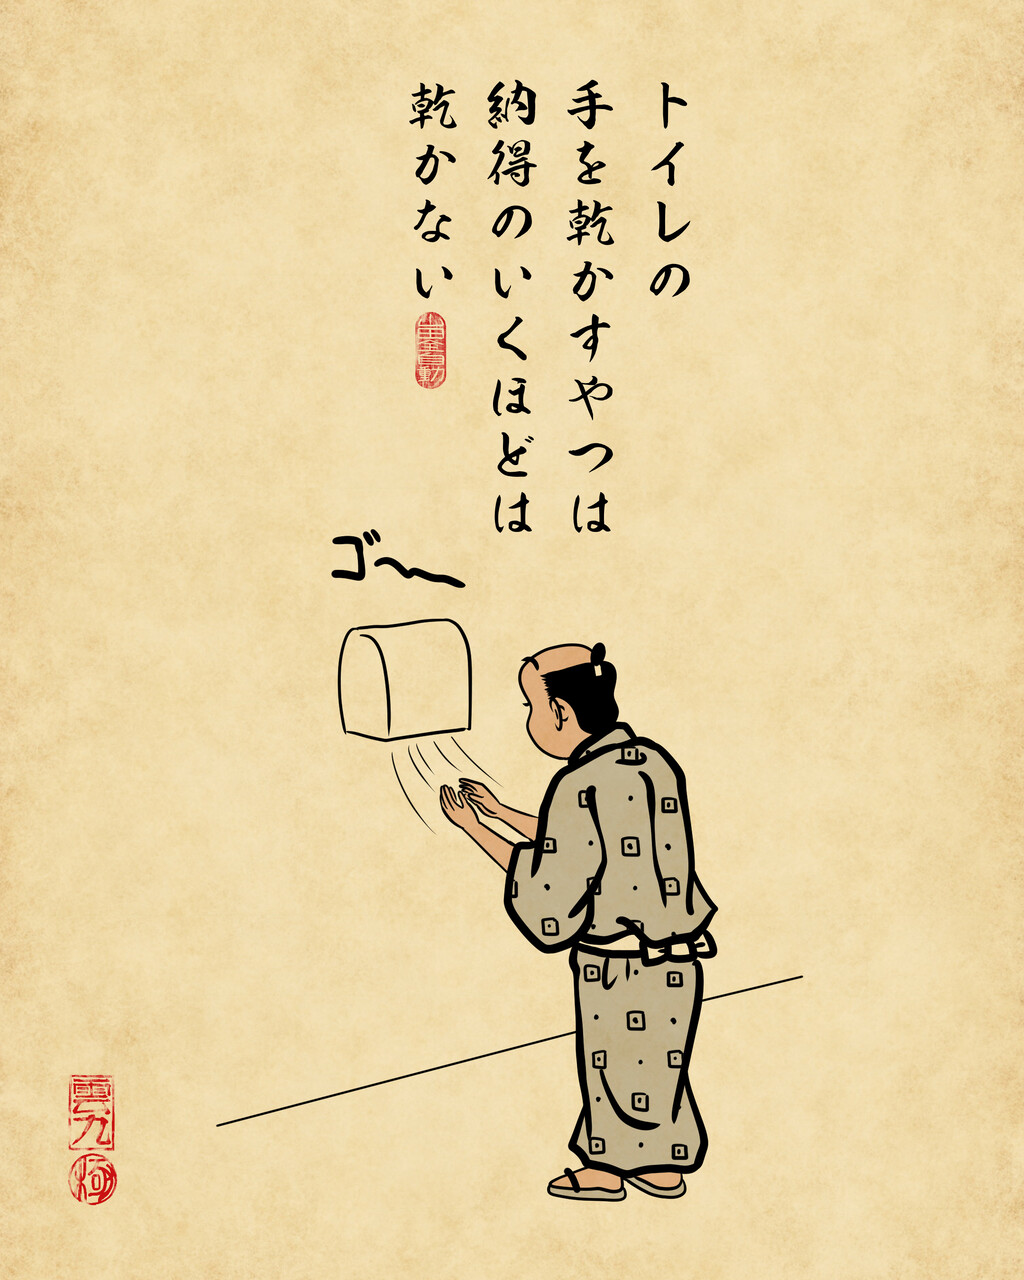 トイレの
手を乾かすやつは
納得のいくほどは
乾かない
ゴ〜